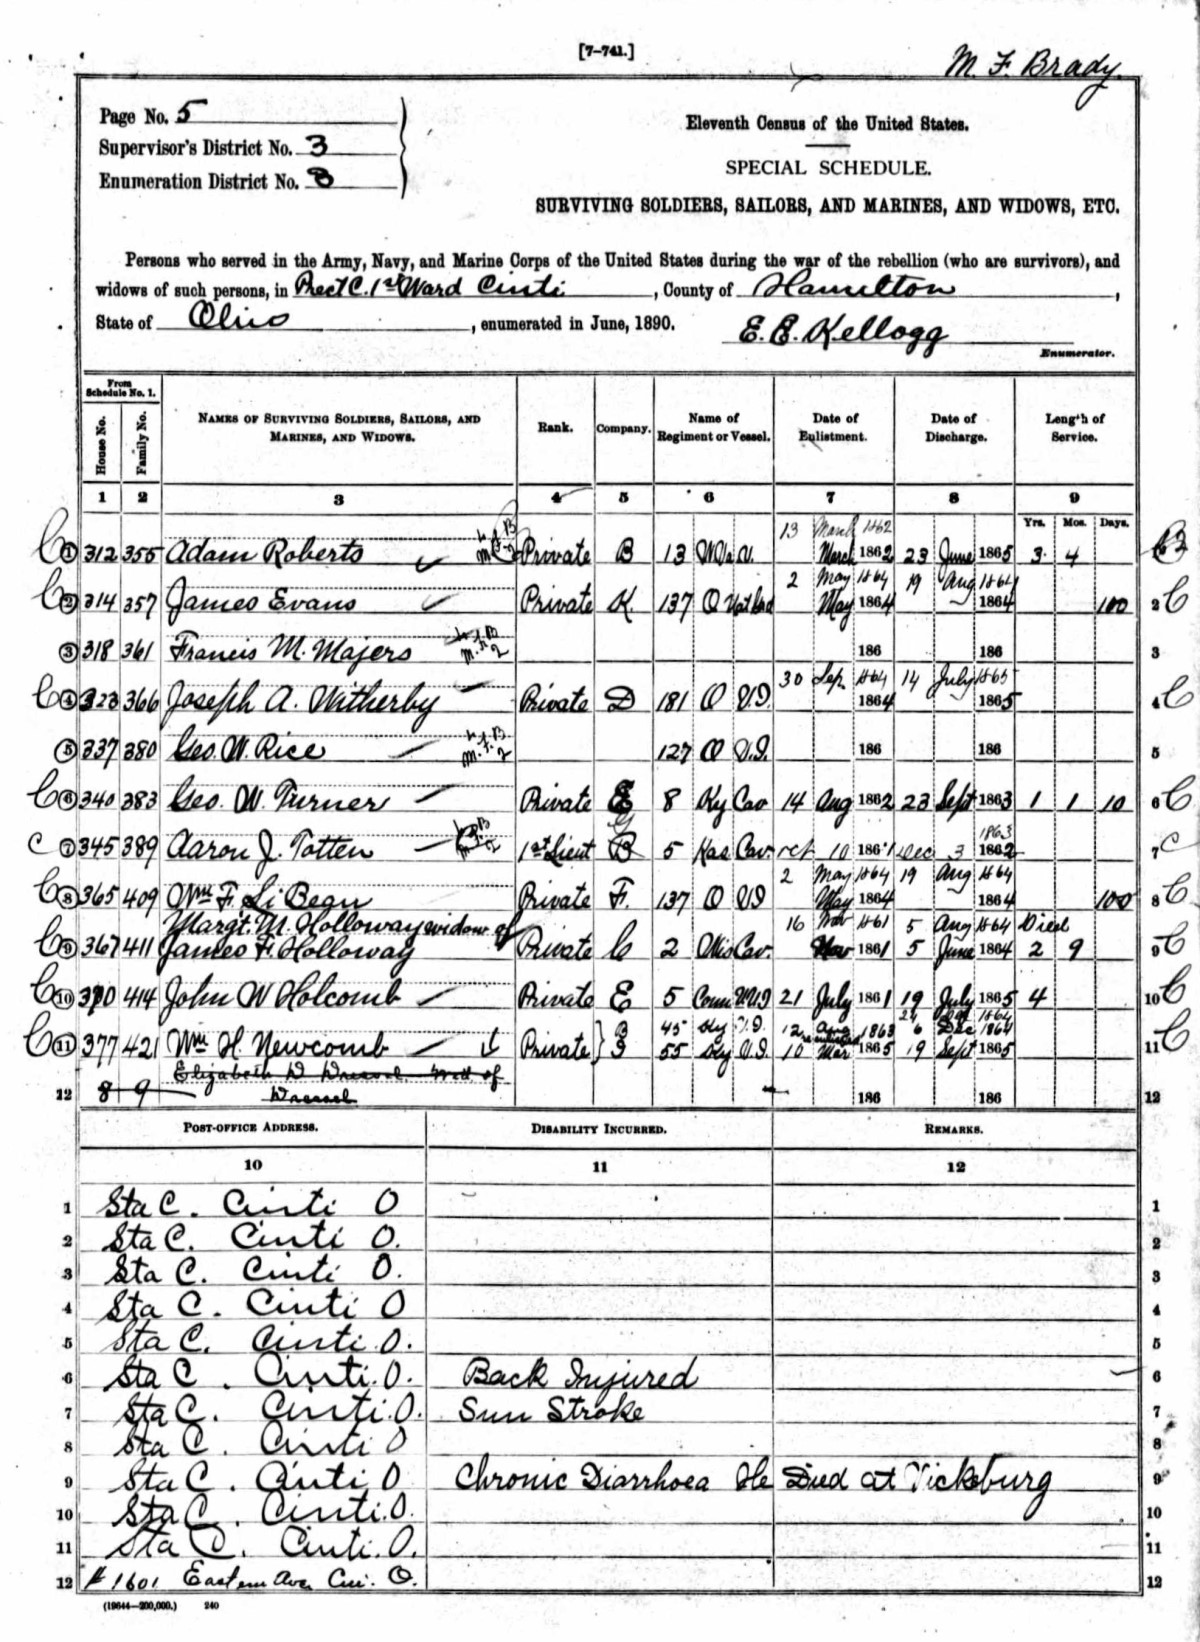 [7-741.]
M. F. Brady
Page No. 5
Supervisor's District No. 3
Enumeration District No. 8
Eleventh Census of the United States.
SPECIAL SCHEDULE.
SURVIVING SOLDIERS, SAILORS, AND MARINES, AND WIDOWS, ETC.
Persons who served in the Army, Navy, and Marine Corps of the United States during the war of the rebellion (who are survivors), and
widows of such persons, in Prect C. 1st Ward Cinti, County of Hamilton,
State of Ohio, enumerated in June, 1890. E. E. Kellogg
Enumerator.
From Schedule No. 1.
House No. Family No. NAMES OF SURVIVING SOLDIERS, SAILORS, AND MARINES, AND WIDOWS. Rank. Company. Name of Regiment or Vessel. Date of Enlistment. Date of Discharge. Length of Service.
1 2 3 4 5 6 7 8 9
Yrs. Mos. Days.
13 March 1862
C 1 312 355 Adam Roberts Private B 13 W Va March 1862 23 June 1865 3 4
2 May 1864 19 Aug 1864
C 2 314 357 James Evans Private K. 137 O May 1864 1864 100 2 C
3 318 361 Francis M. Majers M.F.B 2 186 186 3
30 Sep. 1864 14 July 1865
C 4 323 366 Joseph A. Witherby Private D 181 O V.I. 1864 1865 4 C
5 337 380 Geo. W. Rice M.F.B 2 127 O V.I. 186 186 5
C 6 340 383 Geo. W. Turner Private E 8 Ky Cav 14 Aug 1862 23 Sept 1863 1 1 10 6 C
G 1863
C 7 345 389 Aaron J. Totten 1st Lieut B 5 Kas Cav. oct 10 1861 Dec 3 1862 7 C
2 May 1864 19 Aug 1864
C 8 365 409 Wm F. Li Beau Private F. 137 O V I May 1864 1864 100 8 C
Margt. M. Holloway widow of 16 Nov 1861 5 Aug 1864 Died
C 9 367 411 James F. Holloway Private C 2 Wis Cav. Nov 1861 5 June 1864 2 9 9 C
C 10 370 414 John W Holcomb Private E 5 Conn 21 July 1861 19 July 1865 4 10 C
B 45 Ky V.I. 12 Aug 1863 6 Dec 1864
C 11 377 421 Wm H. Newcomb Private 55 Ky V.I. 10 Mar 1865 19 Sept 1865 11 C
Elizabeth D Dressel Wid of
12 8 9 Dressel 186 186 12
POST-OFFICE ADDRESS. DISABILITY INCURRED. REMARKS.
10 11 12
1 Sta C. Cinti O 1
2 Sta C. Cinti O. 2
3 Sta C. Cinti O. 3
4 Sta C. Cinti O 4
5 Sta C. Cinti O. 5
6 Sta C. Cinti. O. Back Injured 6
7 Sta C. Cinti. O. Sun Stroke 7
8 Sta C. Cinti O 8
9 Sta C. Cinti O Chronic Diarrhoea He Died at Vicksburg 9
10 Sta C. Cinti. O. 10
11 Sta C. Cinti. O. 11
12 # 1601 Eastern Ave Cin. O. 12
(19644—200,000.) 240